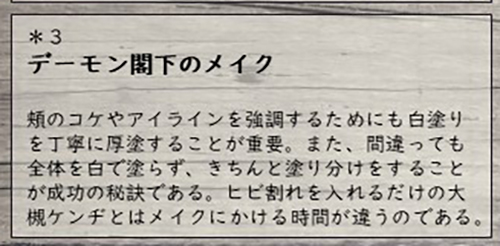 ＊3
デーモン閣下のメイク
頬のコケやアイラインを強調するためにも白塗り
を丁寧に厚塗することが重要。また、間違っても
全体を白で塗らず、きちんと塗り分けをすること
が成功の秘訣である。ヒビ割れを入れるだけの大
槻ケンヂとはメイクにかける時間が違うのである。